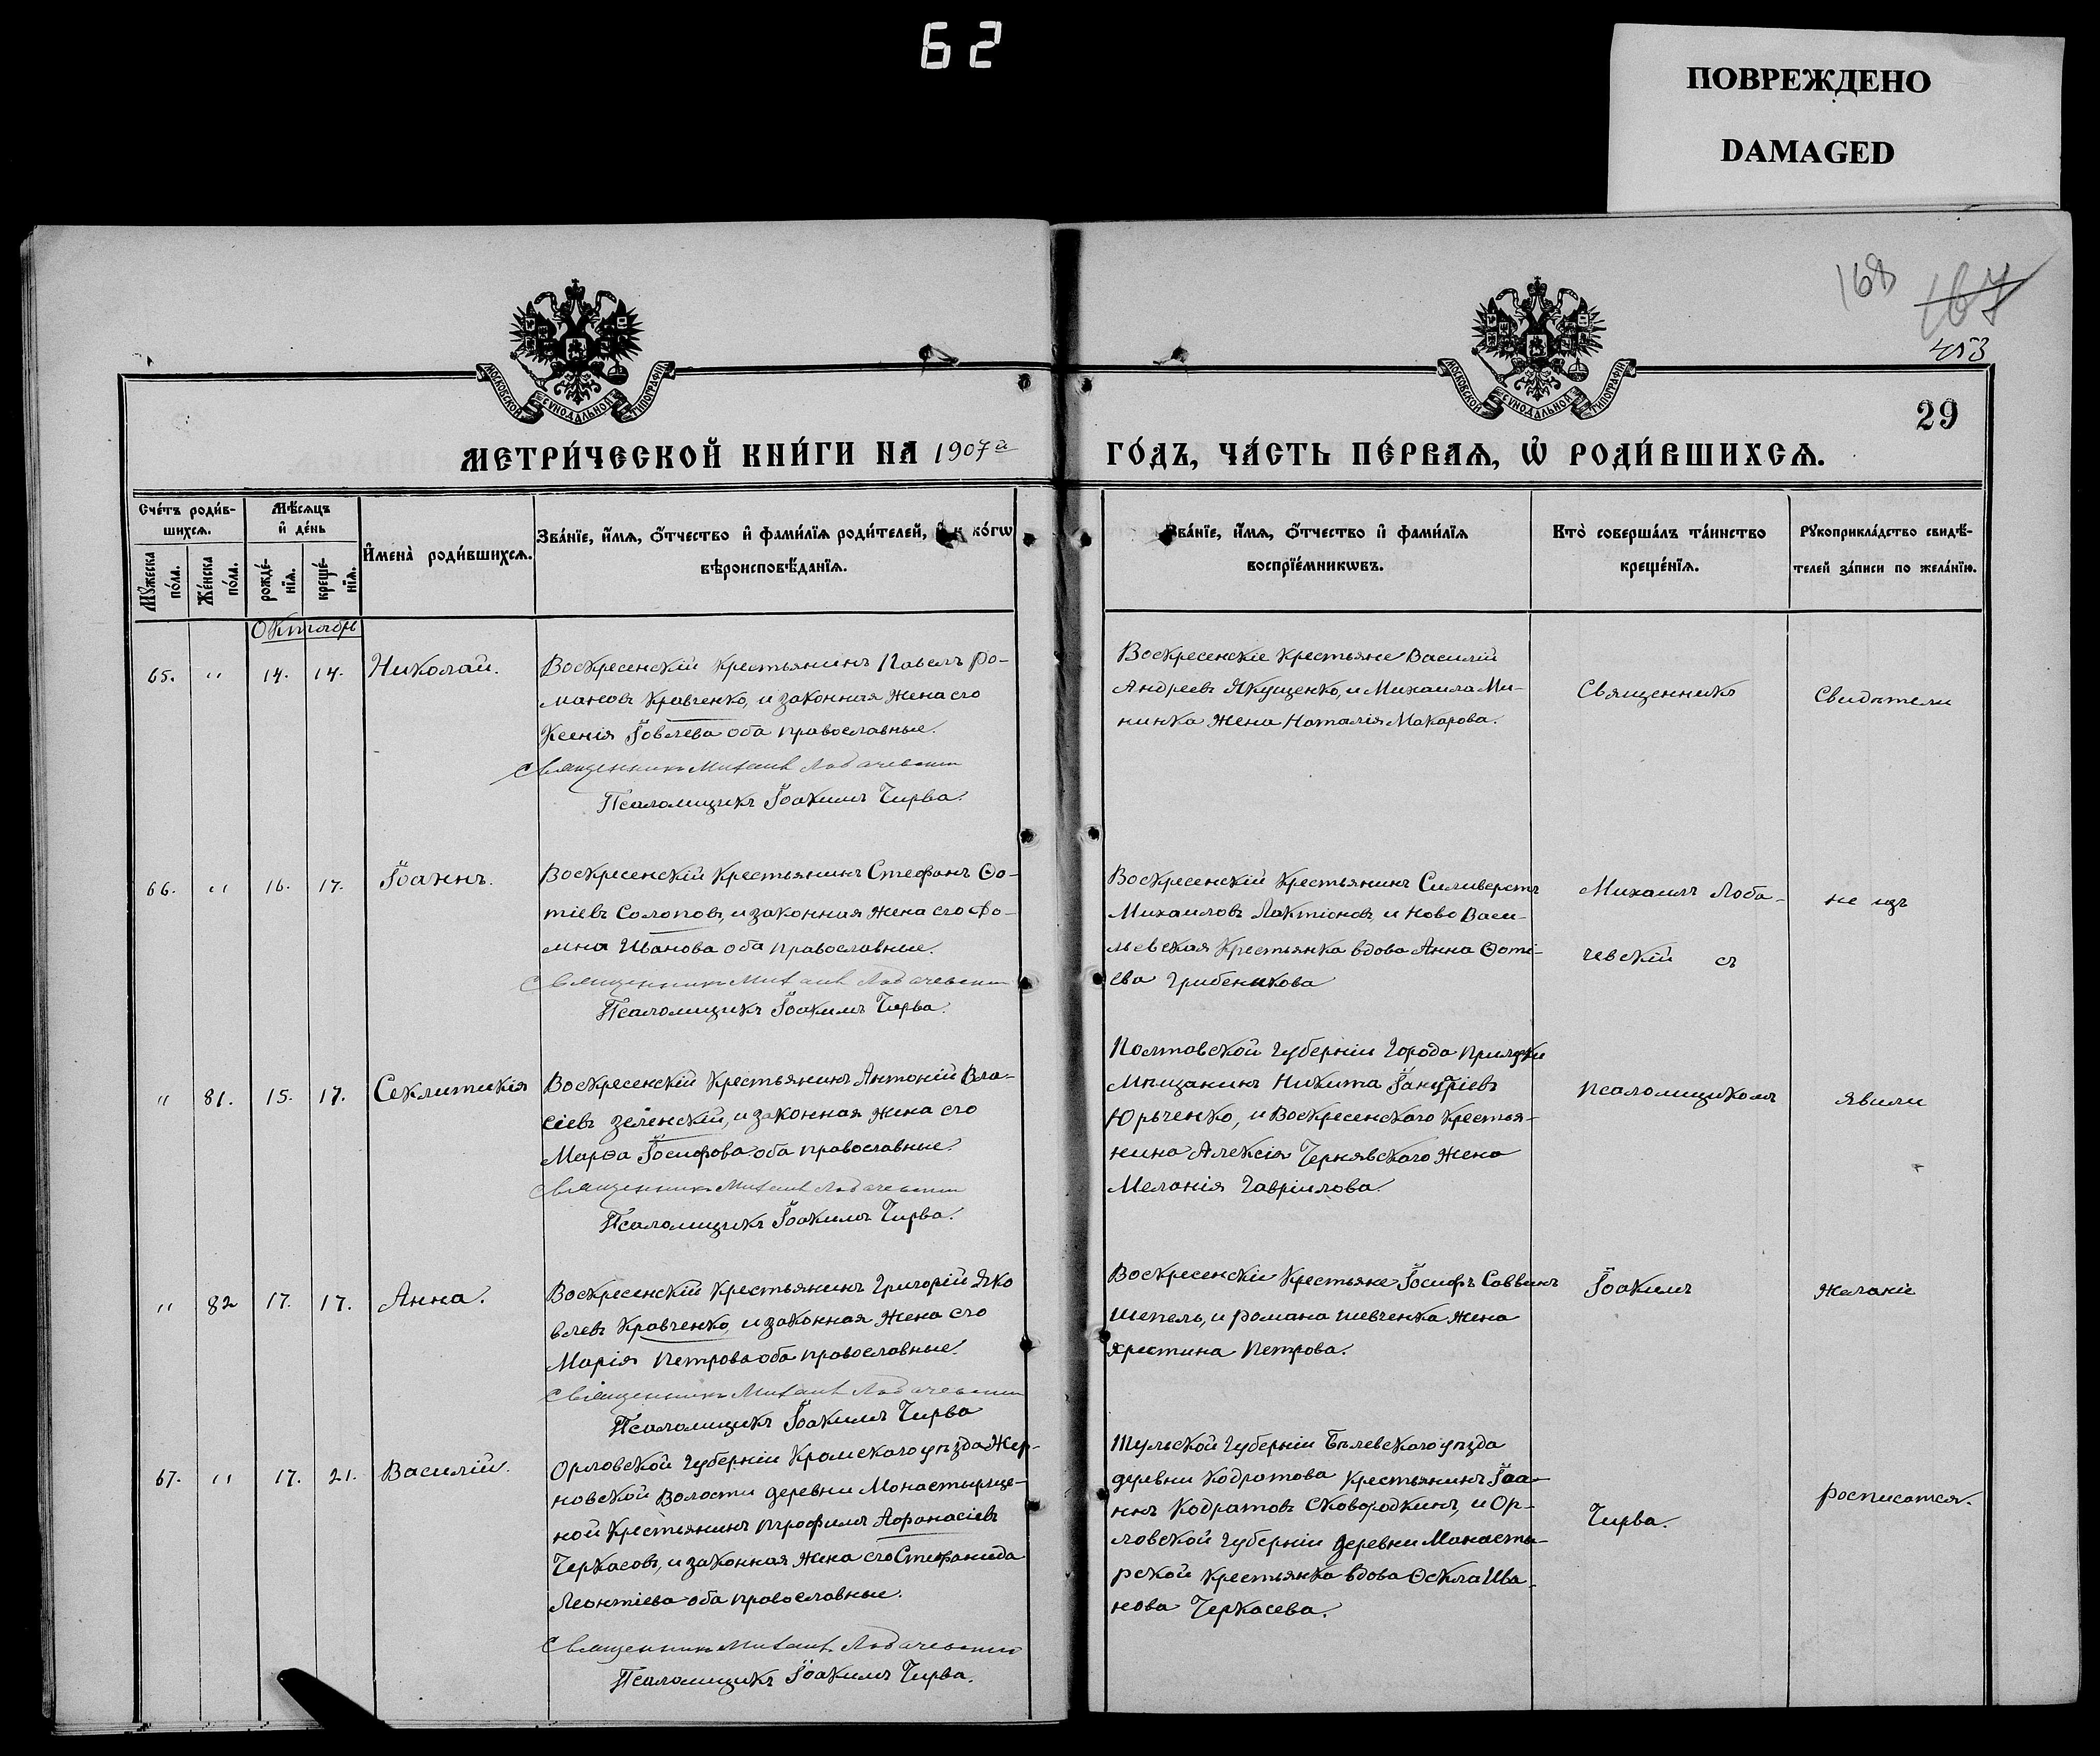 62
ПОВРЕЖДЕНО
DAMAGED
168
167
453
МОСКОВСКОЙ СѴНОДАЛЬНОЙ ТИПОГРАФІИ
МОСКОВСКОЙ СѴНОДАЛЬНОЙ ТИПОГРАФІИ
29
МЕТРИ́ЧЕСКОЙ КНИ́ГИ НА 1907й
ГО́ДЪ, ЧА́СТЬ ПЕ́РВАѦ, Ѡ҆ РОДИ́ВШИХСѦ.
Сче́тъ роди́в-
шихсѧ.
Мꙋ́жеска по́ла.
Же́нска по́ла.
Мѣ́сѧцъ
и҆ де́нь
рожде́-
нїѧ.
креще́-
нїѧ.
И҆мена̀ роди́вшихсѧ.
Зва́нїе, и҆́мѧ, ѻ҆́тчество и҆ фами́лїѧ роди́телей, и҆ к ко́гѡ
вѣроисповѣ́данїѧ.
Зва́нїе, и҆́мѧ, ѻ҆́тчество и҆ фами́лїѧ
воспрїе́мникѡвъ.
Кто̀ соверша́лъ та́инство
креще́нїѧ.
Рꙋкоприкла́дство свидѣ́-
телей за́писи по жела́нїю.
Октябрь
65. " 14. 14. Николай.
Воскресенскій крестьянинъ Павелъ Ро-
мановъ Кравченко, и законная жена его
Ксенія Іовлева оба православные.
Священникъ Михаилъ Лобачевскій
Псаломщикъ Іоакимъ Чирва.
Воскресенскіе крестьяне Василій
Андреевъ Якущенко, и Михаила Ми-
нинка жена Наталія Макарова.
Священникъ
Свидѣтели
66. " 16. 17. Іоаннъ.
Воскресенскій крестьянинъ Стефанъ Ѳо-
тіевъ Солоповъ, и законная жена его До-
мна Иванова оба православные.
Священникъ Михаилъ Лобачевскій
Псаломщикъ Іоакимъ Чирва.
Воскресенскій крестьянинъ Силиверстъ
Михаиловъ Лактіоновъ, и Ново Васи-
льевская крестьянка вдова Анна Ѳоті-
ева Грибеникова
Михаилъ Лоба-
чевскій съ
не изъ
" 81. 15. 17. Секлитикія
Воскресенскій крестьянинъ Антоній Вла-
сіевъ Зеленскій, и законная жена его
Марѳа Іосифова оба православные.
Священникъ Михаилъ Лобачевскій
Псаломщикъ Іоакимъ Чирва.
Полтовской губерніи города Прилуки
Мѣщанинъ Никита
Юрьченко, и Воскресенскаго крестья-
нина Алексія Чернявскаго жена
Меланія Гавріилова.
псаломщикомъ
явили
" 82 17. 17. Анна.
Воскресенскій крестьянинъ Григорій Яко
влевъ Кравченко, и законная жена его
Марія Петрова оба православные.
Священникъ Михаилъ Лобачевскій
Псаломщикъ Іоакимъ Чирва
Воскресенскіе крестьяне Іосифъ Саввинъ
Шепель, и Романа Шевченка жена
Христина Петрова.
Іоакимъ
желаніе
67. " 17. 21. Василій.
Орловской губерніи Кромскаго уѣзда Жер-
новской волости деревни Монастырще-
ной крестьянинъ Трофимъ Аѳанасіевъ
Черкасовъ, и законная жена его Стефанида
Леонтіева оба православные.
Священникъ Михаилъ Лобачевскій
Псаломщикъ Іоакимъ Чирва.
Тульской губерніи Бѣлевскаго уѣзда
деревни Кодратова крестьянинъ Іоа-
ннъ Кодратовъ Сковородкинъ, и Ор-
ловской губерніи деревни Манасты-
рской крестьянка вдова Ѳекла Ива-
нова Черкасева.
Чирва.
росписатся.